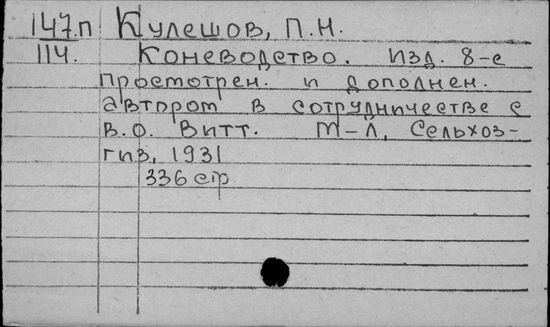 147.п Кулешов, П.Н.
114. Коневодство. Изд. 8-е
просмотрен. и дополнен.
автором в сотрудничестве с
В.О. Витт. М-Л, Сельхоз-
гиз, 1931
336 стр.